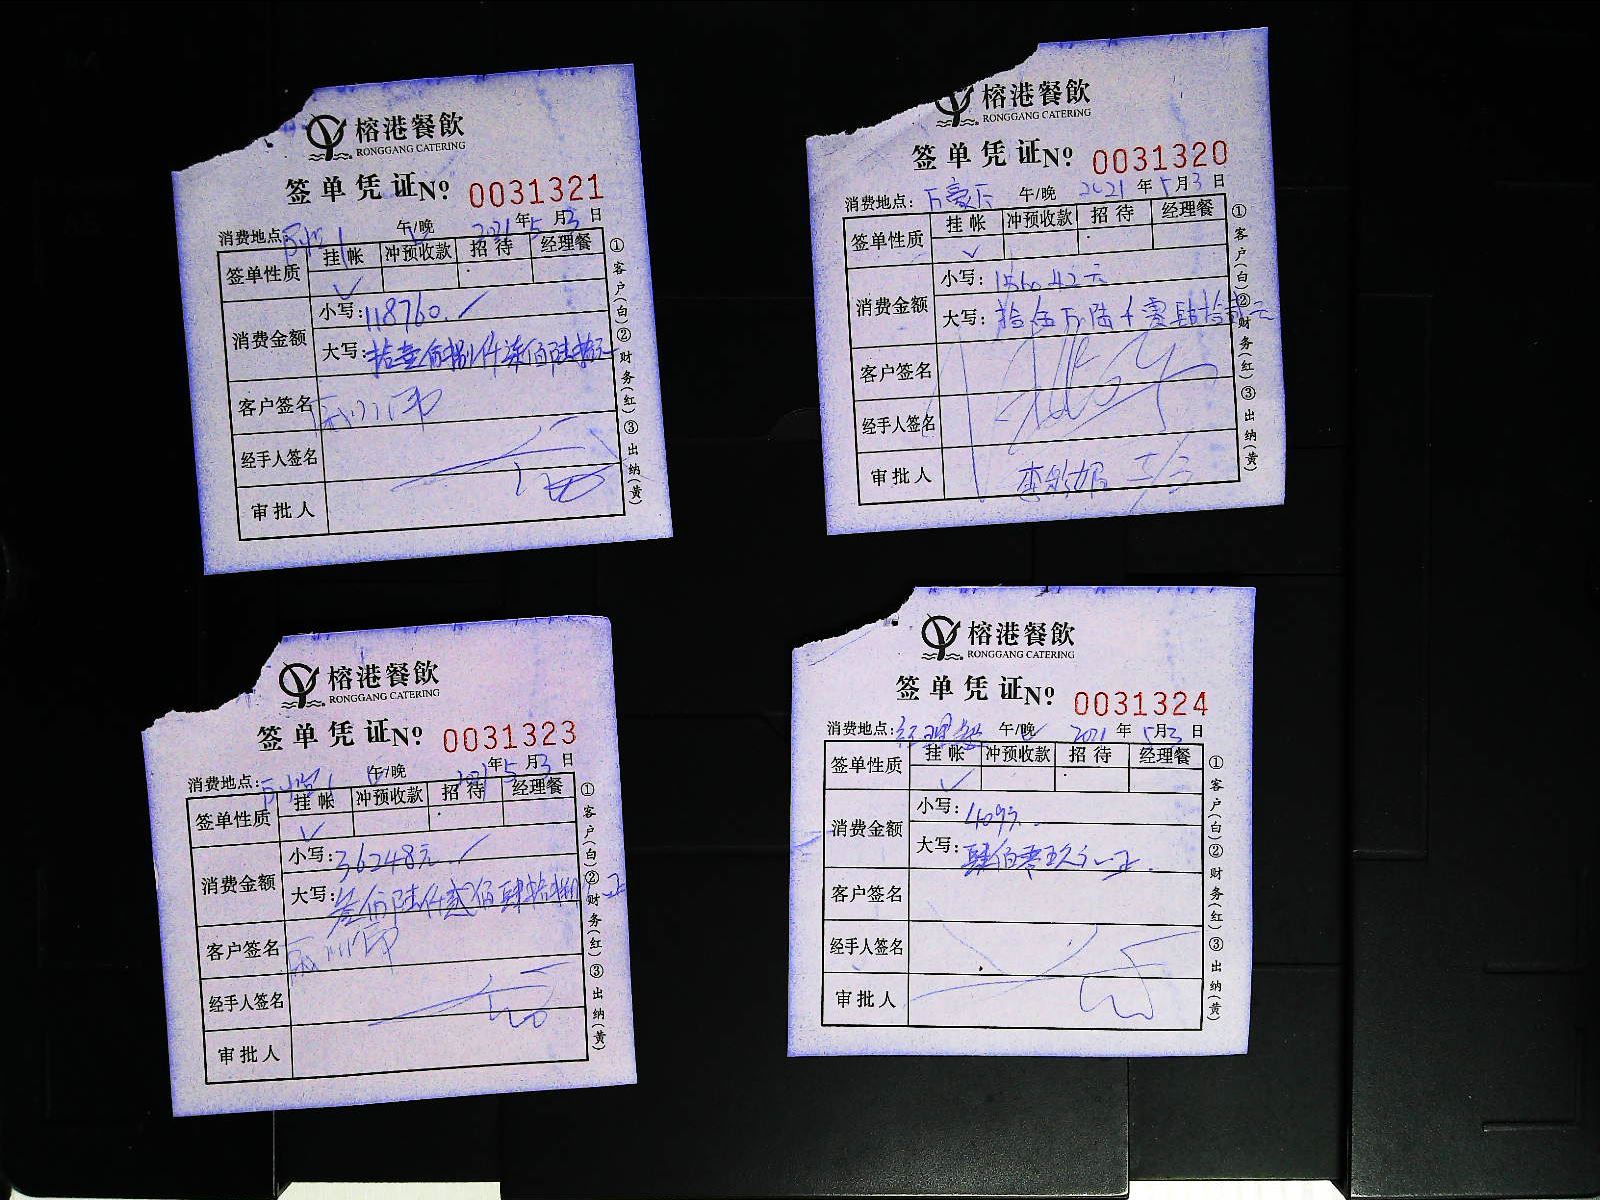 榕港餐飲
RONGGANG CATERING
签单凭证 Nº 0031321
消费地点: 午/晚 2021年5月3日
签单性质 挂帐 冲预收款 招待 经理餐
✓
消费金额 小写: 118760.
大写: 拾壹万捌仟柒佰陆拾元
客户签名
经手人签名
审批人
①客户(白)②财务(红)③出纳(黄)
榕港餐飲
RONGGANG CATERING
签单凭证 Nº 0031320
消费地点: 万豪 午/晚 2021年5月3日
签单性质 挂帐 冲预收款 招待 经理餐
✓
消费金额 小写: 156042元
大写: 拾伍万陆千零肆拾贰元
客户签名
经手人签名
审批人
①客户(白)②财务(红)③出纳(黄)
榕港餐飲
RONGGANG CATERING
签单凭证 Nº 0031323
消费地点: 午/晚 2021年5月3日
签单性质 挂帐 冲预收款 招待 经理餐
✓
消费金额 小写: 36248元
大写: 叁万陆仟贰佰肆拾捌元正
客户签名
经手人签名
审批人
①客户(白)②财务(红)③出纳(黄)
榕港餐飲
RONGGANG CATERING
签单凭证 Nº 0031324
消费地点: 经理餐 午/晚 2021年5月3日
签单性质 挂帐 冲预收款 招待 经理餐
✓
消费金额 小写: 409元
大写: 肆佰零玖元正
客户签名
经手人签名
审批人
①客户(白)②财务(红)③出纳(黄)